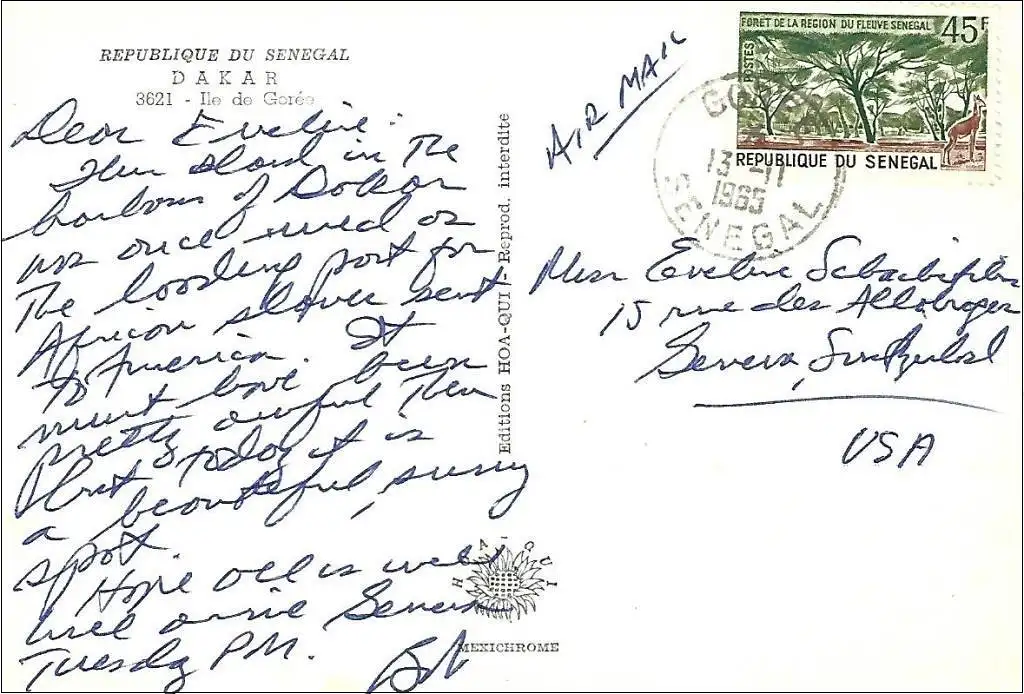 REPUBLIQUE DU SENEGAL
DAKAR
3621 - Ile de Gorée
Dear Eveline:
This island in the
harbour of Dakar
was once used as
the loading port for
African slaves sent
to America. It
must have been
pretty awful then
But today it is
a beautiful, sunny
spot.
Hope all is well
Will arrive Geneva
Tuesday PM.
Bob
Editions HOA-QUI - Reprod. interdite
HOA-QUI
MEXICHROME
AIR MAIL
FORET DE LA REGION DU FLEUVE SENEGAL
45F
POSTES
REPUBLIQUE DU SENEGAL
13-11
1965
SENEGAL
Miss Eveline
15 rue des Allobroges
Geneva, Switzerland
USA